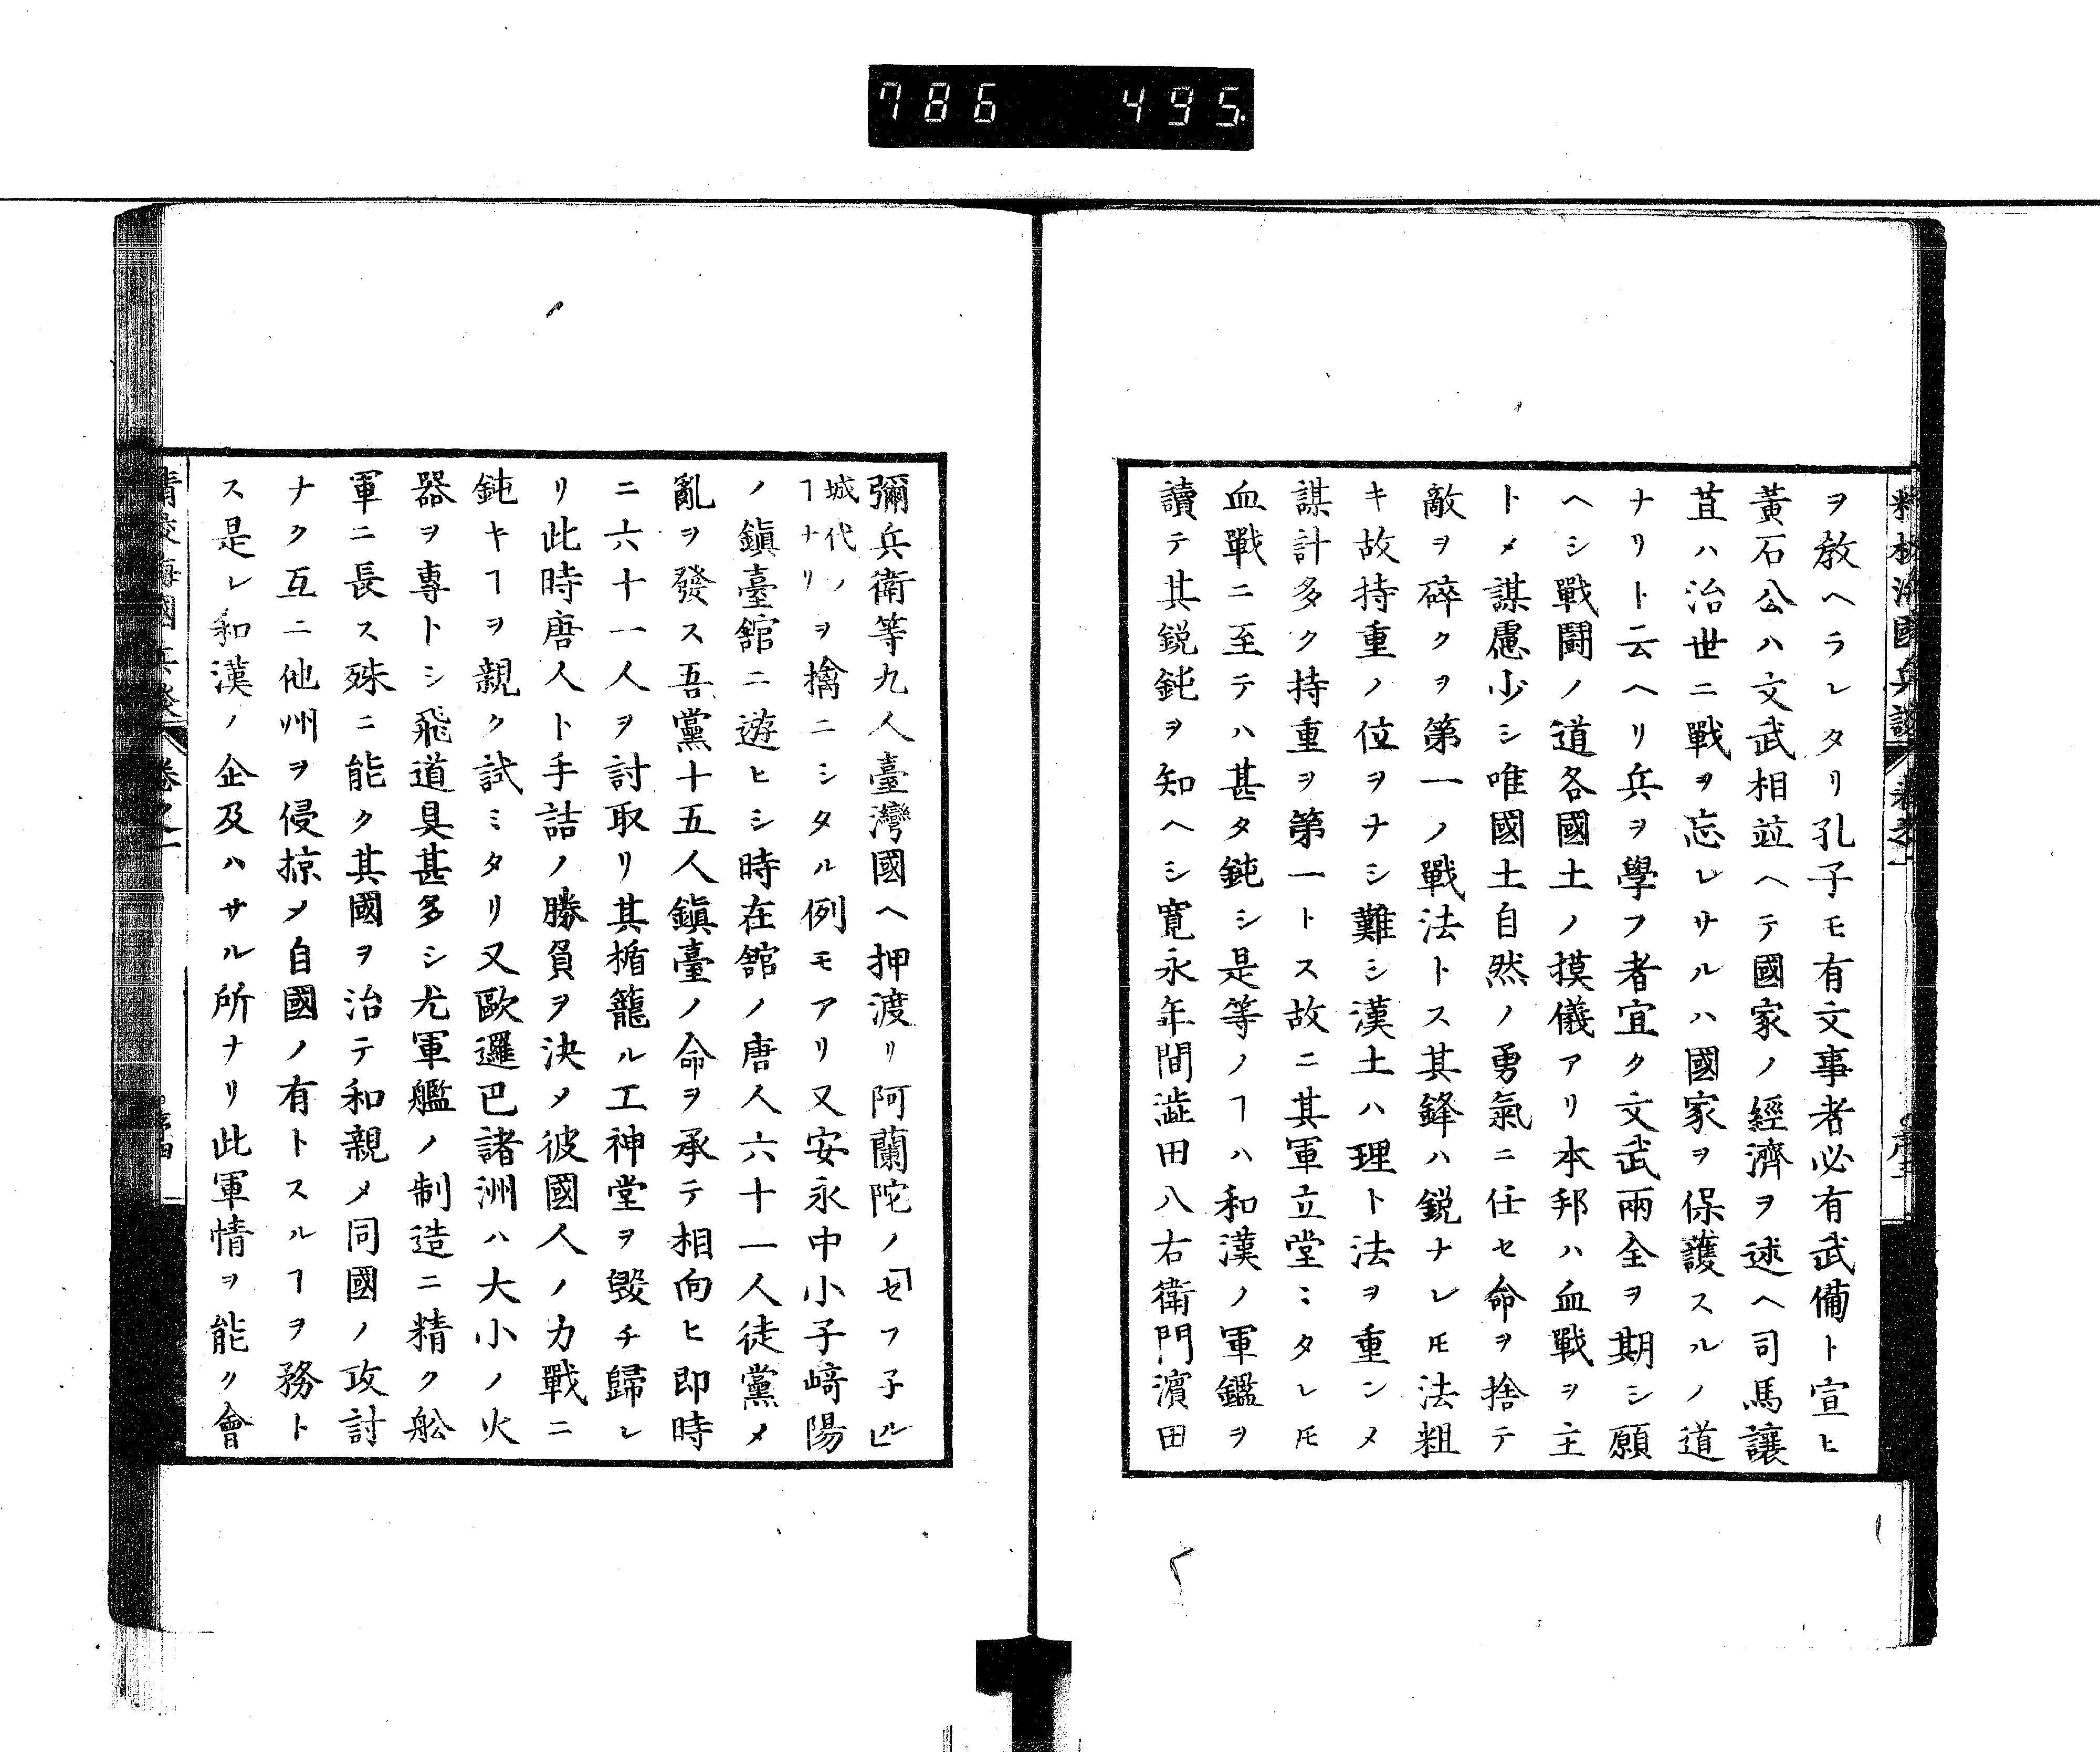 786 495
精校海國兵談 卷之一
ヲ教ヘラレタリ孔子モ有文事者必有武備ト宣ヒ
黃石公ハ文武相並ヘテ國家ノ經濟ヲ述ヘ司馬讓
苴ハ治世ニ戰ヲ忘レサルハ國家ヲ保護スルノ道
ナリト云ヘリ兵ヲ學フ者宜ク文武兩全ヲ期シ願
ヘシ戰鬪ノ道各國土ノ摸儀アリ本邦ハ血戰ヲ主
トメ謀慮少シ唯國土自然ノ勇氣ニ任セ命ヲ捨テ
敵ヲ碎クヲ第一ノ戰法トス其鋒ハ鋭ナレ𪜈法粗
キ故持重ノ位ヲナシ難シ漢土ハ理ト法ヲ重ンメ
謀計多ク持重ヲ第一トス故ニ其軍立堂ミタレ𪜈
血戰ニ至テハ甚タ鈍シ是等ノヿハ和漢ノ軍鑑ヲ
讀テ其鋭鈍ヲ知ヘシ寛永年間澁田八右衛門濱田
彌兵衛等九人臺灣國ヘ押渡リ阿蘭陀ノ「セフ子ル」
城代ノヿナリヲ擒ニシタル例モアリ又安永中小子﨑陽
ノ鎭臺舘ニ遊ヒシ時在舘ノ唐人六十一人徒黨メ
亂ヲ發ス吾黨十五人鎭臺ノ命ヲ承テ相向ヒ即時
ニ六十一人ヲ討取リ其楯籠ル工神堂ヲ毀チ歸レ
リ此時唐人ト手詰ノ勝負ヲ決メ彼國人ノ力戰ニ
鈍キヿヲ親ク試ミタリ又歐邏巴諸洲ハ大小ノ火
器ヲ專トシ飛道具甚多シ尤軍艦ノ制造ニ精ク舩
軍ニ長ス殊ニ能ク其國ヲ治テ和親メ同國ノ攻討
ナク互ニ他州ヲ侵掠メ自國ノ有トスルヿヲ務ト
ス是レ和漢ノ企及ハサル所ナリ此軍情ヲ能ク會
精校海國兵談 卷之一 序四